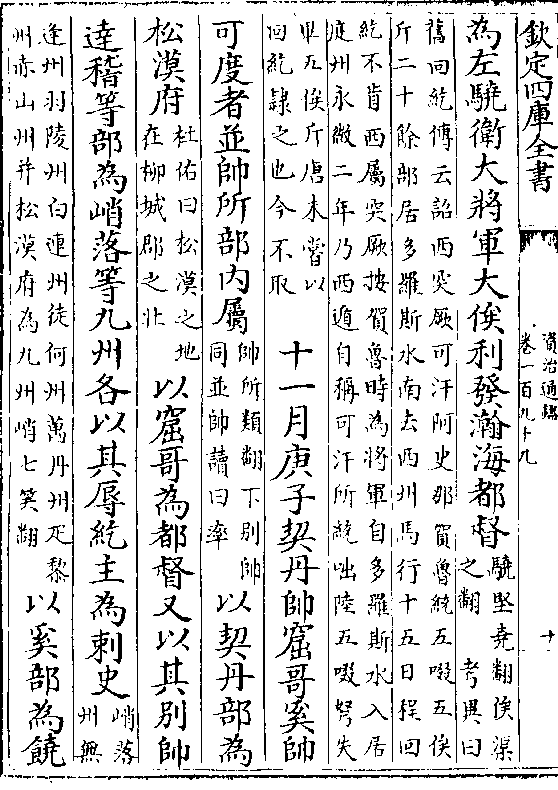 欽定四庫全書
資治通鑑
卷一百九十九
十
為左驍衛大將軍大俟利發瀚海都督驍堅堯翻俟渠
之翻 考異曰
舊回紇傳云詔西突厥可汗阿史那賀魯統五啜五俟
斤二十餘部居多羅斯水南去西州馬行十五日程回
紇不肯西屬突厥按賀魯時為將軍自多羅斯水入居
庭州永徽二年乃西遁自稱可汗所統咄陸五啜弩失
畢五俟斤唐未嘗以
回紇隸之也今不取
十一月庚子契丹帥窟哥奚帥
可度者並帥所部內屬帥所類翻下別帥
同並帥讀曰率
以契丹部為
松漠府杜佑曰松漠之地
在柳城郡之北
以窟哥為都督又以其別帥
達稽等部為峭落等九州各以其辱紇主為刺史峭落
州無
逢州羽陵州白連州徒何州萬丹州疋黎
州赤山州并松漠府為九州峭七笑翻
以奚部為饒